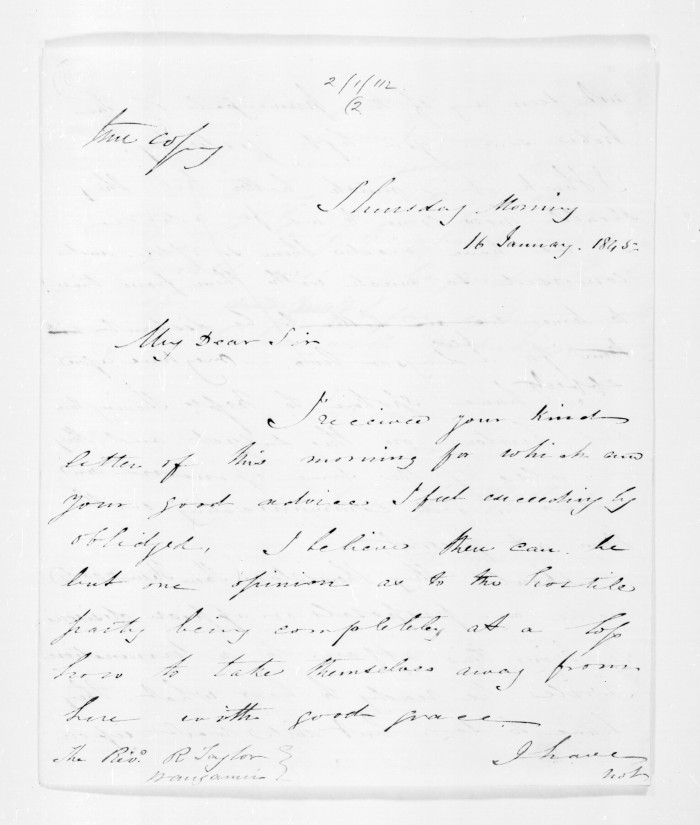 2/1/112
(2
true copy
Thursday Morning
16 January. 1845=
My Dear Sir
I received your kind
letter of this morning for which and
your good advice I feel exceedingly
oblidged, I believe there can be
but one opinion as to the hostile
party being completely at a loss
how to take themselves away from
here with good grace
The Revd. R Taylor
Wanganui
I have
not